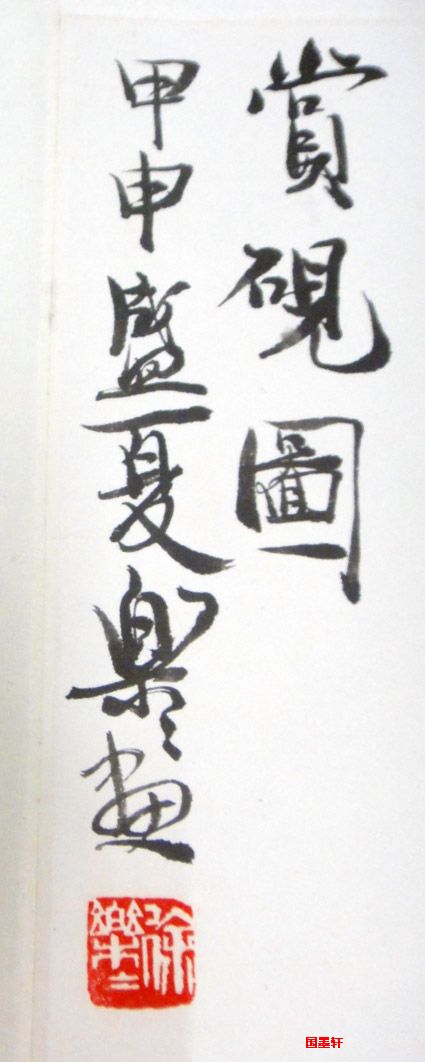 賞硯圖
甲申盛夏樂々畫
徐樂二
国墨轩